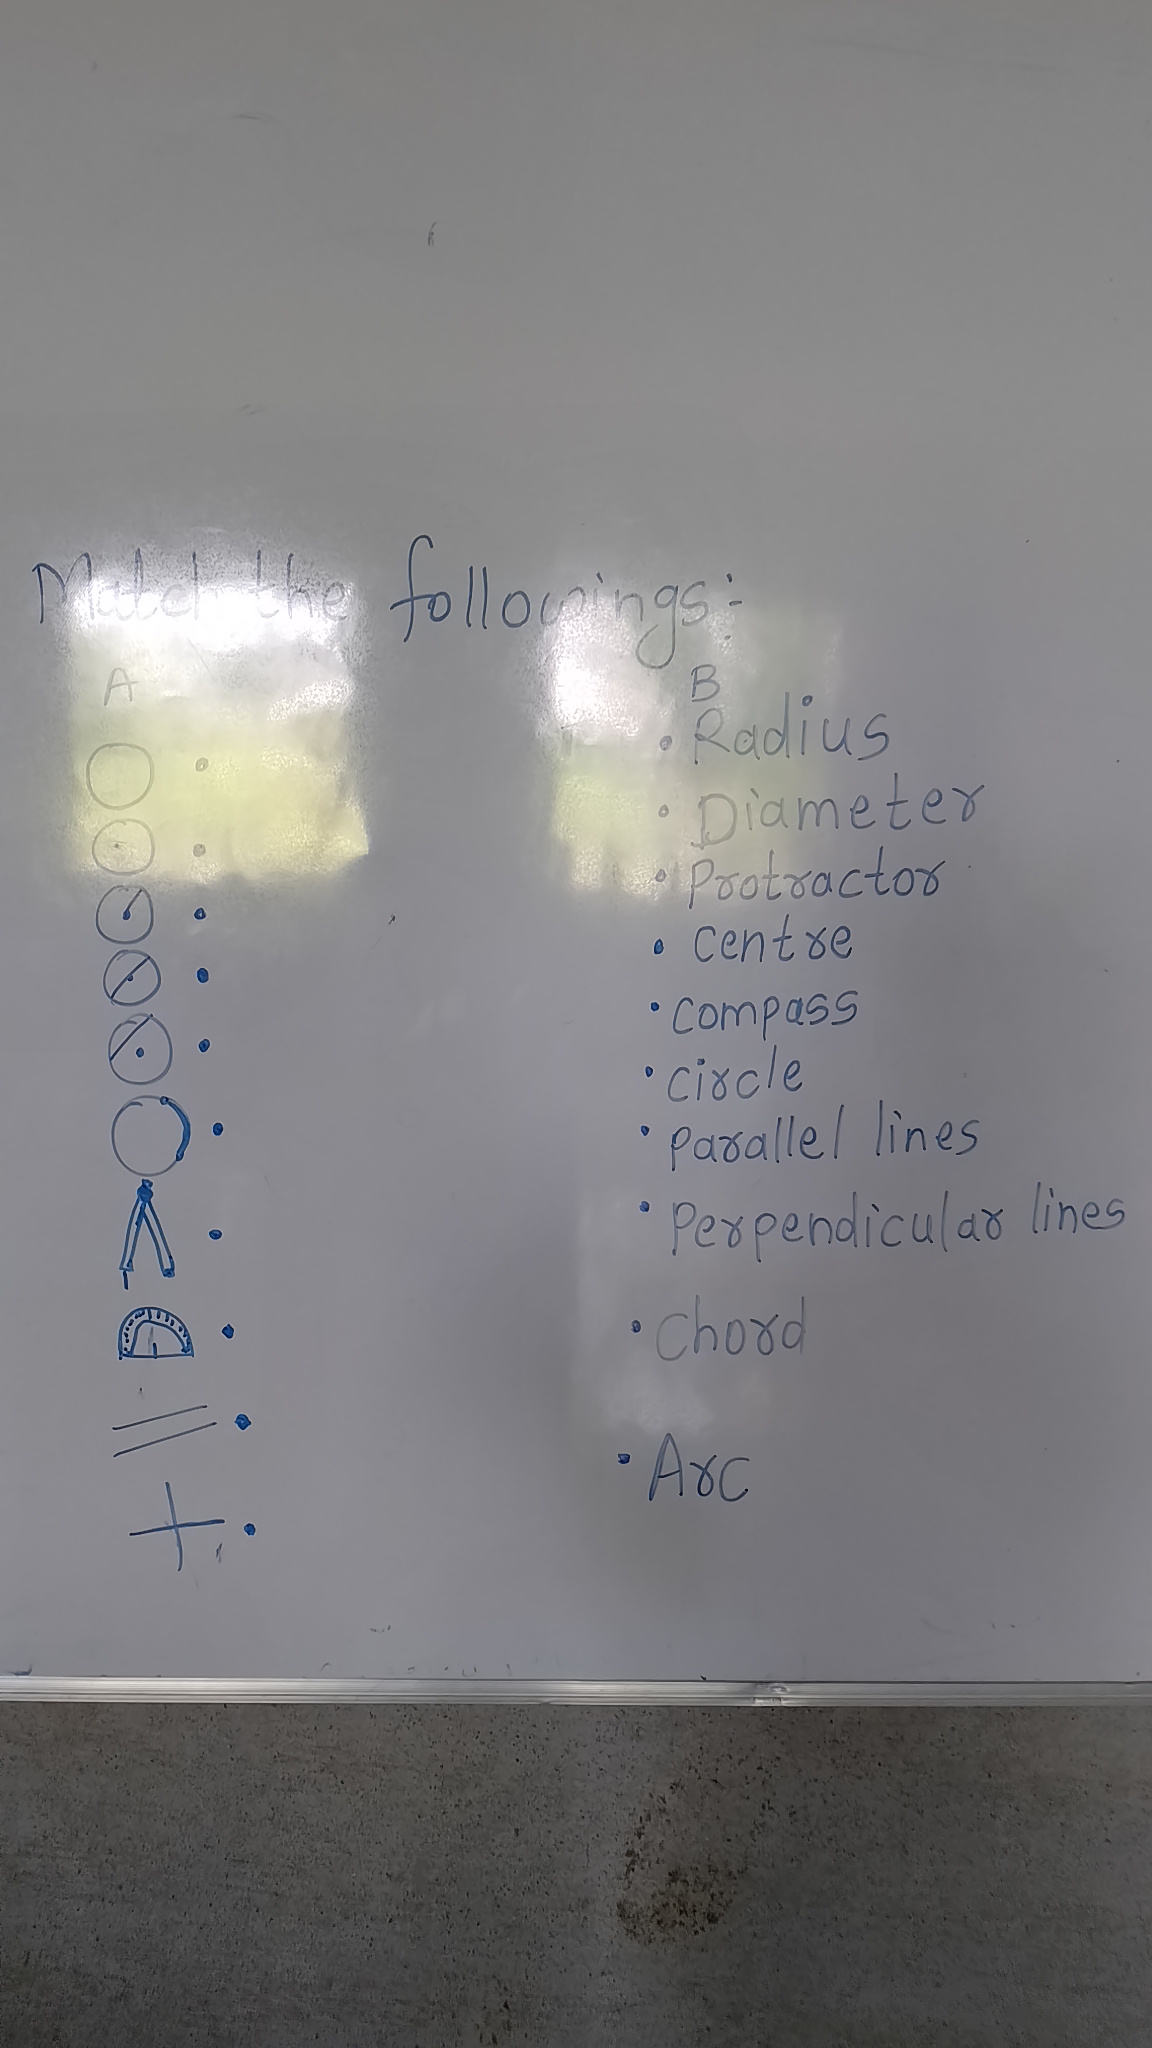 Match the followings:-
A
B
Radius
Diameter
Protractor
centre
compass
circle
parallel lines
Perpendicular lines
chord
Arc